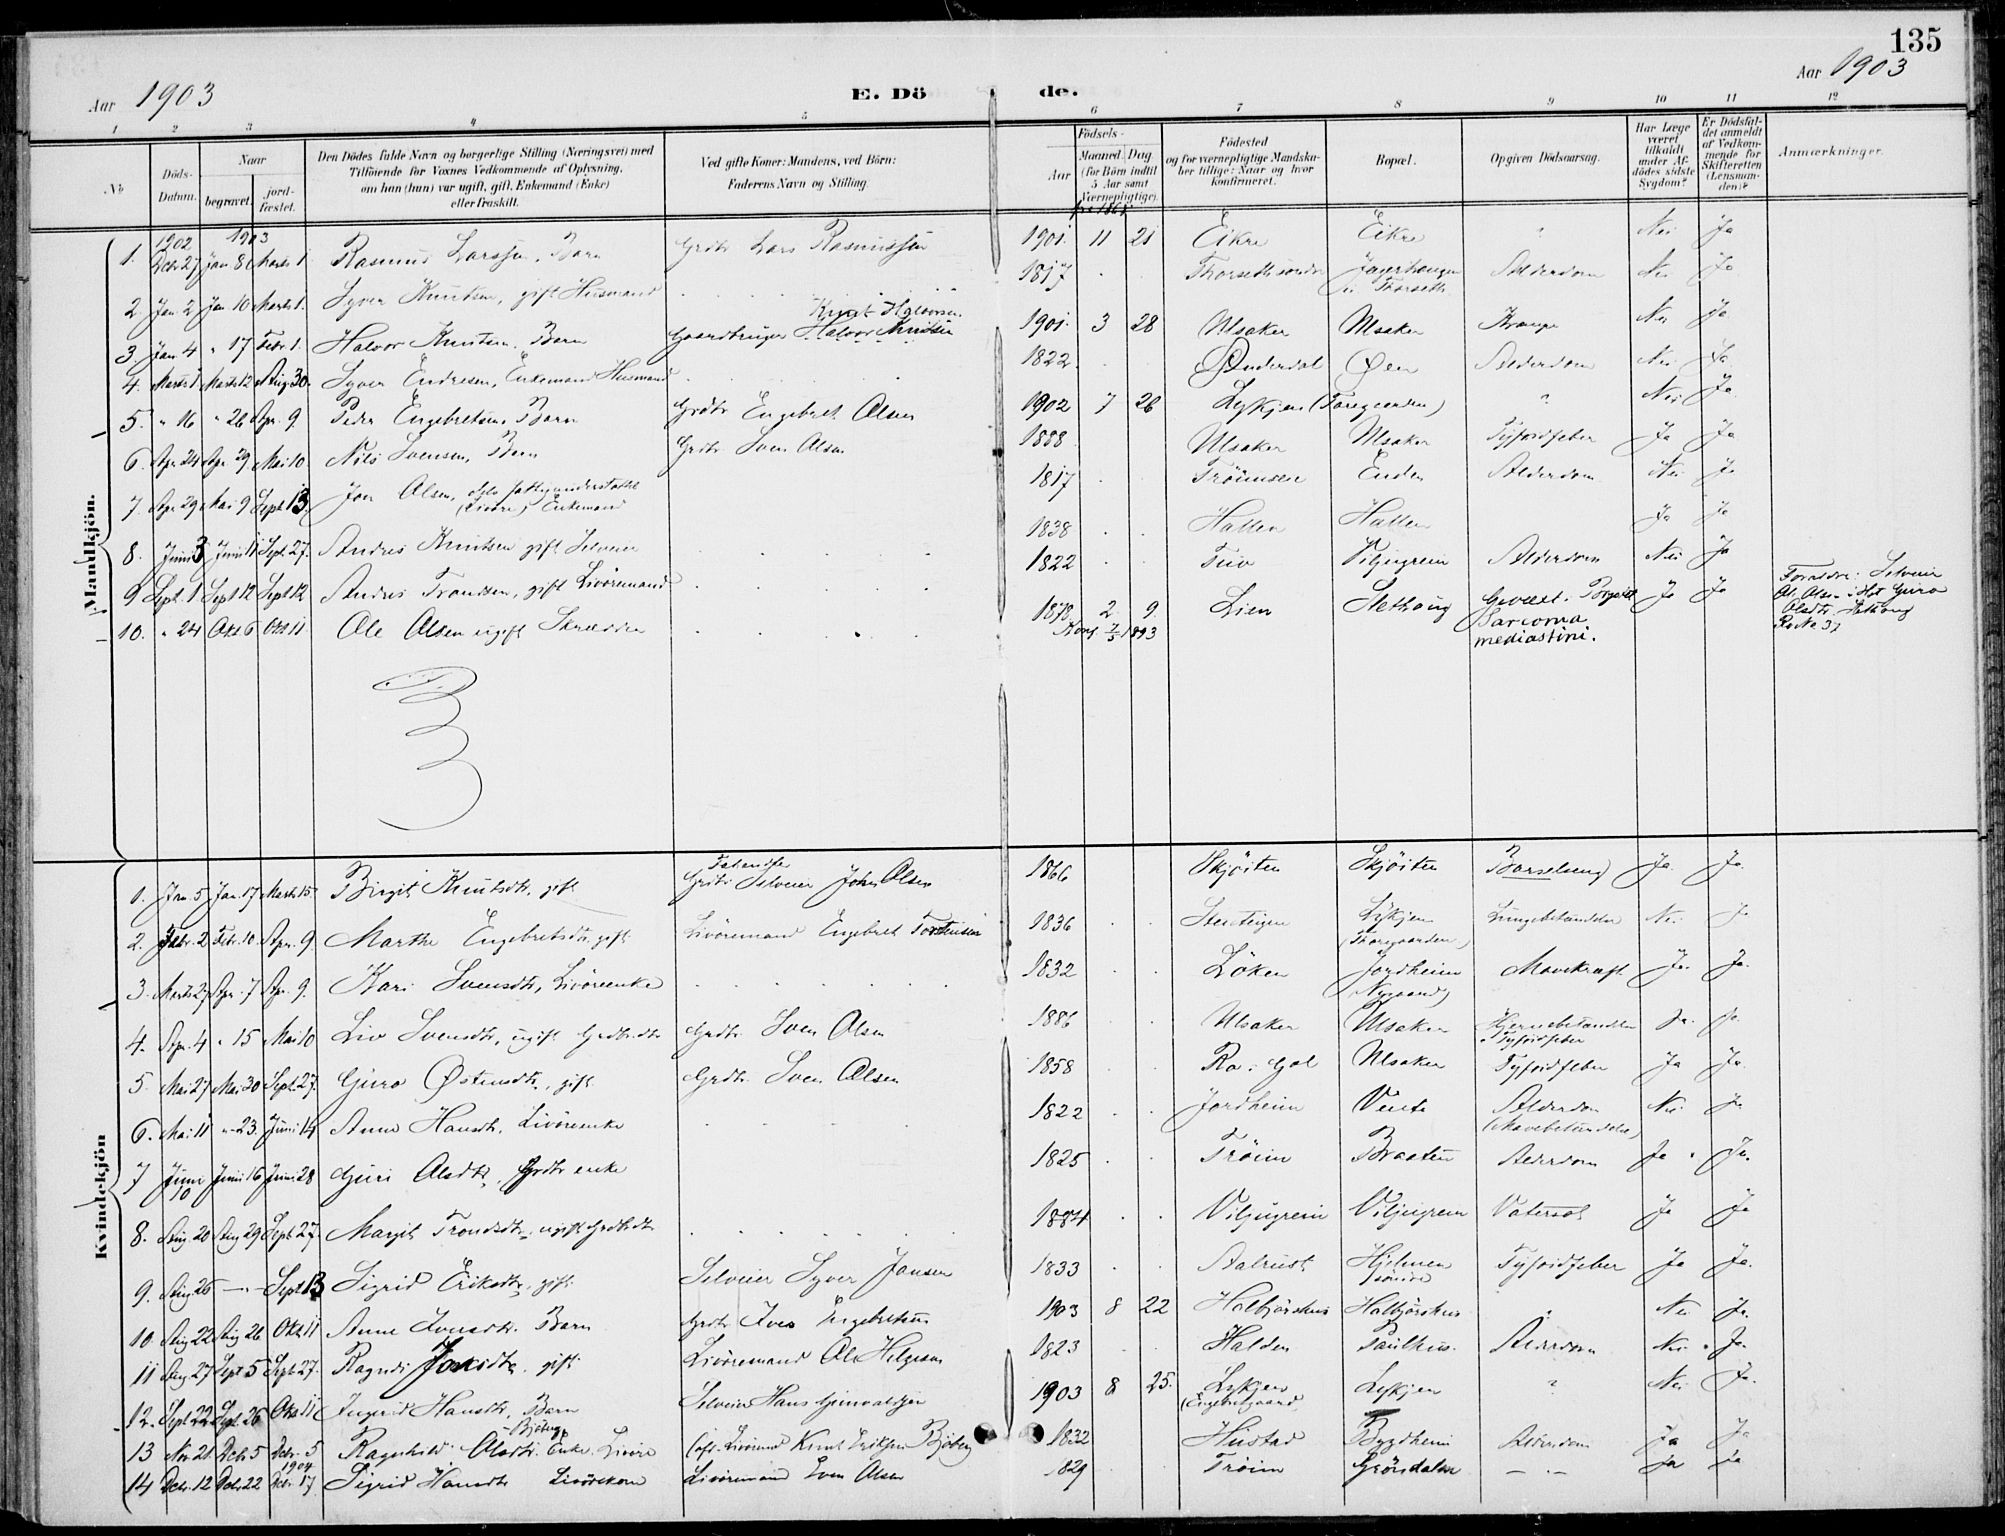 135
Aar 1903
E. Dö de.
Aar 1903
1 2 3 4 5 6 7 8 9 10 11 12
No
Döds-Datum.
Naar
begravet.
jord-fæstet.
Den Dödes fulde Navn og borgerlige Stilling (Næringsvei) med
Tilföiende for Voxnes Vedkommende af Oplysning,
om han (hun) var ugift, gift, Enkemand (Enke)
eller fraskilt.
Ved gifte Koner: Mandens, ved Börn:
Faderens Navn og Stilling.
Födsels-
Aar
Maaned. Dag
(for Börn indtil
5 Aar samt
Værnepligtige).
Födested
og for værnepligtige Mandska-
ber tillige: Naar og hvor
konfirmeret.
Bopæl.
Opgiven Dödsaarsag.
Har Læge
været
tilkaldt
under Af-
dödes sidste
Sygdom?
Er Dödsfal-
det anmeldt
af Vedkom-
mende for
Skifteretten
(Lensman-
den)?
Anmærkninger.
Mandkjön.
1902 1903
1. Decbr 27 Jan 8 Marts 1 Rasmus Larssen, Barn Grdbr Lars Rasmussen 1901. 11 21 Eikre Eikre " Nei Ja
2. Jan 2 Jan 10 Marts 1. Syver Knutsen, gift Husmand 1817 Thorseth søndre Jagerhaugen u. Thorseth Alderdom Nei Ja
Knut Halvorsen
3. Jan 4 " 17 Febr 1. Halvor Knutsen. Barn Gaardbruger Halvor Knutsen 1901. 3 28 Ulsaker Ulsaker Krampe Nei Ja
4. Marts 1 Marts 12 Aug 30. Syver Endresen, Enkemand Husmand 1822 Øen Alderdom Nei Ja
5. " 16 " 26 Apr. 9 Peder Engebretsen, Barn Grdbr Engebret Olsen 1902 7 26 Lykkjen (Toregaarden) " Nei Ja
6. Apr 24 Apr 29 Mai 10. Nils Svensen, Barn Grdbr Sven Olsen 1888 Ulsaker Ulsaker Tyfoidfeber Ja Ja
7. Apr 29 Mai 9 Sept 13 Jon Olsen, dels fattigunderstøttet (Livøre) Enkemand 1817 Trøimsen Enden Alderdom Nei Ja
8. Juni 3 Juni 11 Sept. 27. Andres Knutsen gift Selveier 1838 Halten Halten Ja Ja
9 Sept. 1 Sept 12 Sept 12 Andres Trondsen, gift Livøremand 1822 Tuv Viljugrein Alderdom Nei Ja
10. " 24 Okt 6 Okt 11 Ole Olsen ugift Skrædder 1878 2 9 Lien Stethaug Gevæxt i Brystet Ja Ja
Sarcoma
mediastini.
Forældre: Selveier
Ol. Olsen i Hst Guro
Olsdtr. Stethaug
Kvindekjön
1. Jan. 5 Jan. 17 Marts 15. Birgit Knutsdtr, gift Grdbr Selveier John Olsen 1866 Skjøiten Skjøiten Barselseng Ja. Ja.
2. Febr. 2 Febr. 10 Apr. 9 Marthe Engebretsdtr, gift Livøremand Engebret Torstensen 1836 Lykkjen (Thoregaarden) Lungebetændelse Nei. Ja
3. Marts 27 Apr. 7 Apr. 9. Kari Svensdtr, Livøreenke 1832 Løken Jordheim (Nygaard) Mavekræft Ja. Ja.
4. Apr. 4 " 15 Mai 10 Liv Svensdtr, ugift Grdbr.dtr Grdbr Sven Olsen 1886 Ulsaker Ulsaker Hjernebetændelse Tyfoidfeber Ja. Ja.
5. Mai 27 Mai 30 Sept 27. Guro Østensdtr, gift Grdbr. Sven Olsen 1858 Ro i Gol Ulsaker Tyfoidfeber Ja Ja.
6. Mai 11 " 23. Juni 14 Anne Hansdtr. Livøreenke 1822 Jordheim Alderdom (Mavebetændelse) Nei. Ja
7 Juni 10 Juni 16 Juni 28 Guri Olsdtr, Grdbr enke 1825 Trøim Braaten Alderdom Ja. Ja.
8. Aug. 20 Aug 29 Sept 27. Margit Trondsdtr, ugift Grdbrdtr 1884 Viljugrein Viljugrein Vatersot Ja Ja
9. Aug 26 — " — Sept 13 Sigrid Eriksdtr, gift Selveier Syver Jonsen 1833 Aalrust Hjelmen søndre Tyfoidfeber Ja Ja.
10 Aug 22 Aug 26 Okt 11 Anne Iversdtr. Barn Grdbr Iver Engebretsen 1903 8 22 Halbjørshus Halbjørshus " Nei Ja.
11 Aug 27 Sept 5 Sept 27. Ragndi gift Livøremand Ole Helgesen 1823 Halden Paulhus. Alderdom Nei. Ja.
12. Sept 22 Sept 26 Okt 11 Ingrid Hansdtr, Barn Selveier Hans 1903 8 25. Lykkjen (Engebretgaard) Lykkjen " Nei Ja.
Bjøberg
13 Nov 21 Dcbr 5 Dcbr. 5 Ragnhild Olsdtr. Enke, Livøre (afd. Livørem Knut Eriksen Bjøberg 1832 Hustad Bygdheim Alderdom Ja Ja
1904
14 Dcbr. 12 Dcbr 22 17 Sigrid Hansdtr Livørekone Livøremand Sven Olsen 1829 Trøim Grøndalen — " — Ja Ja